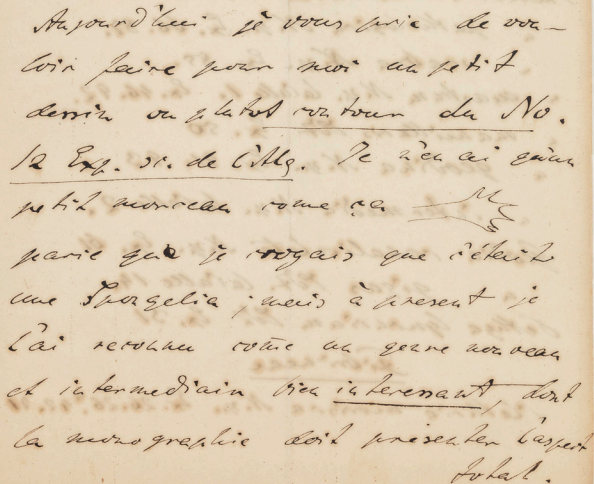 Aujourd'hui je vous prie de vou-
loir faire pour moi un petit
dessin ou plutot contour du No.
12 Exp. sc. de l'Alg. Je n'en ai qu'un
petit morceau come ça
parie que je croyais que c'était
une Spongelia; mais à present je
l'ai reconnu come un genre nouveau
et intermediair bien interessant, dont
la monographie doit présenter l'aspect
total.